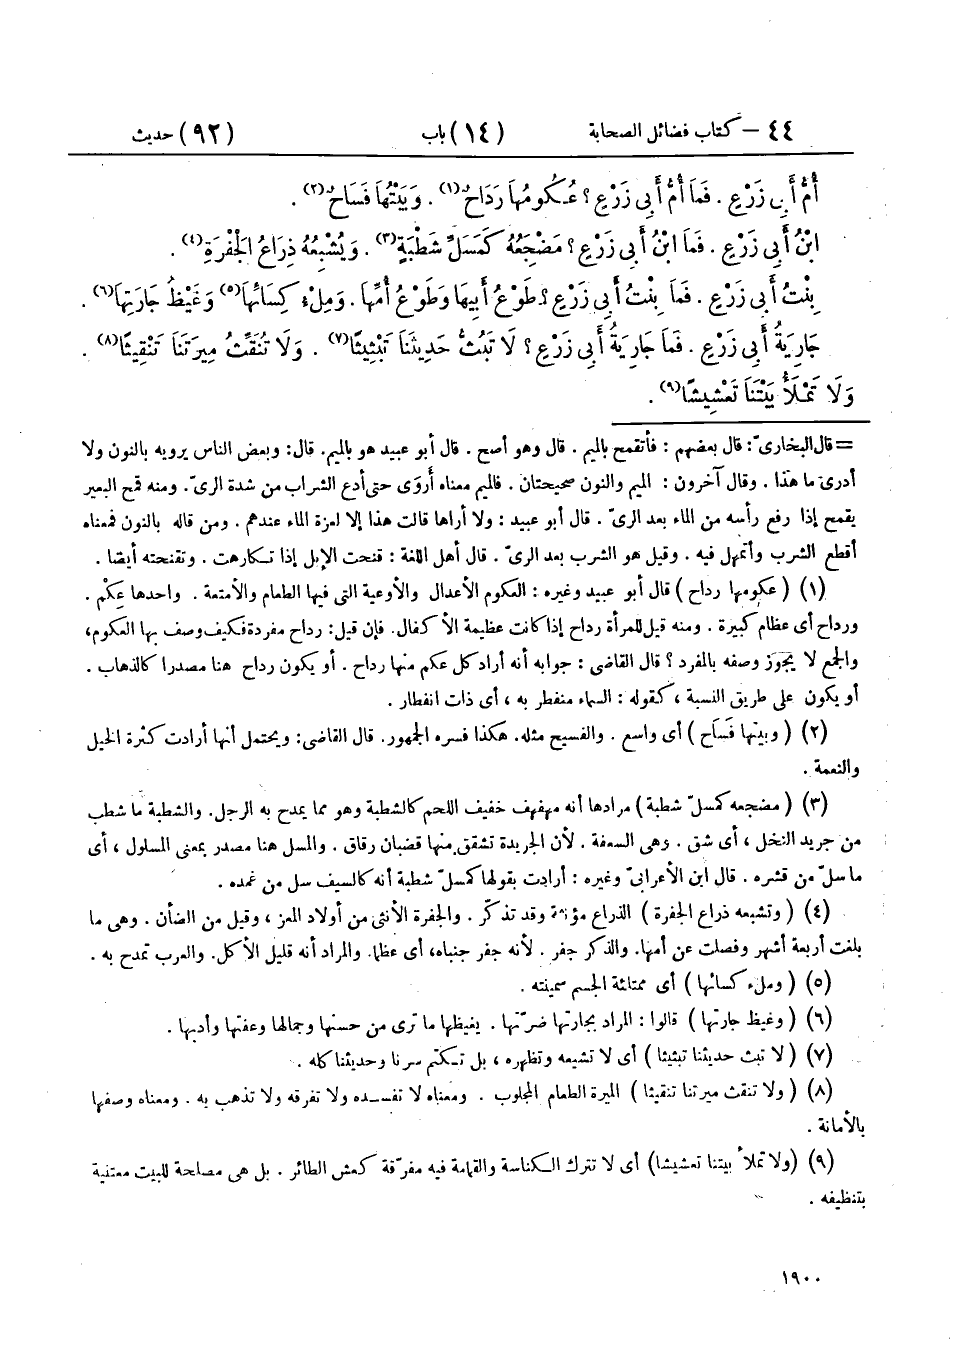 ٤٤ – كتاب فضائل الصحابة (١٤) باب (٩٢) حديث
أُمُّ أَبِي زَرْعٍ . فَمَا أُمُّ أَبِي زَرْعٍ ؟ عُكُومُهَا رَدَاحٌ(١) . وَبَيْتُهَا فَسَاحٌ(٢) .
ابْنُ أَبِي زَرْعٍ . فَمَا ابْنُ أَبِي زَرْعٍ ؟ مَضْجَعُهُ كَمَسَلِّ شَطْبَةٍ(٣) . وَيُشْبِعُهُ ذِرَاعُ الْجَفْرَةِ(٤) .
بِنْتُ أَبِي زَرْعٍ . فَمَا بِنْتُ أَبِي زَرْعٍ ؟ طَوْعُ أَبِيهَا وَطَوْعُ أُمِّهَا . وَمِلْءُ كِسَائِهَا(٥) وَغَيْظُ جَارَتِهَا(٦) .
جَارِيَةُ أَبِي زَرْعٍ . فَمَا جَارِيَةُ أَبِي زَرْعٍ ؟ لَا تَبُثُّ حَدِيثَنَا تَبْثِيثًا(٧) . وَلَا تُنَقِّثُ مِيرَتَنَا تَنْقِيثًا(٨) .
وَلَا تَمْلَأُ بَيْتَنَا تَعْشِيشًا(٩) .
= قال البخارىّ : قال بعضهم : فأتقمح بالميم . قال وهو أصح . قال أبو عبيد هو بالميم. قال: وبعض الناس يرويه بالنون ولا
أدرى ما هذا . وقال آخرون : الميم والنون صحيحتان . فالميم معناه أروَى حتى أدع الشراب من شدة الرىّ. ومنه قمح البعير
يقمح إذا رفع رأسه من الماء بعد الرىّ . قال أبو عبيد : ولا أراها قالت هذا إلا لعزة الماء عندهم . ومن قاله بالنون فمعناه
أقطع الشرب وأتمهل فيه . وقيل هو الشرب بعد الرىّ . قال أهل اللغة : قنحت الإبل إذا تكارهت . وتقنحته أيضا .
(١) ( عكومها رداح ) قال أبو عبيد وغيره : العكوم الأعدال والأوعية التى فيها الطعام والأمتعة . واحدها عِكْم .
ورداح أى عظام كبيرة . ومنه قيل للمرأة رداح إذا كانت عظيمة الأكفال. فإن قيل: رداح مفردة فكيف وصف بها العكوم،
والجمع لا يجوز وصفه بالمفرد ؟ قال القاضى : جوابه أنه أراد كل عكم منها رداح . أو يكون رداح هنا مصدرا كالذهاب .
أو يكون على طريق النسبة ، كقوله : السماء منفطر به ، أى ذات انفطار .
(٢) ( وبيتها فَسَاح ) أى واسع . والفسيح مثله. هكذا فسره الجمهور. قال القاضى: ويحتمل أنها أرادت كثرة الخيل
والنعمة .
(٣) ( مضجعه كمسلّ شطبة ) مرادها أنه مهفهف خفيف اللحم كالشطبة وهو مما يمدح به الرجل. والشطبة ما شطب
من جريد النخل ، أى شق . وهى السعفة . لأن الجريدة تشقق منها قضبان رقاق . والمسل هنا مصدر بمعنى المسلول ، أى
ما سلّ من قشره . قال ابن الأعرابىّ وغيره : أرادت بقولها كمسلّ شطبة أنه كالسيف سل من غمده .
(٤) ( وتشبعه ذراع الجفرة ) الذراع مؤنثة وقد تذكّر . والجفرة الأنثى من أولاد المعز ، وقيل من الضأن . وهى ما
بلغت أربعة أشهر وفصلت عن أمها. والذكر جفر . لأنه جفر جنباه، أى عظما. والمراد أنه قليل الأكل. والعرب تمدح به .
(٥) ( وملء كسائها ) أى ممتلئة الجسم سمينته .
(٦) ( وغيظ جارتها ) قالوا : المراد بجارتها ضرّتها . يغيظها ما ترى من حسنها وجمالها وعفتها وأدبها .
(٧) ( لا تبث حديثنا تبثيثا ) أى لا تشيعه وتظهره ، بل تكتم سرنا وحديثنا كله .
(٨) ( ولا تنقث ميرتنا تنقيثا ) الميرة الطعام المجلوب . ومعناه لا تفسده ولا تفرقه ولا تذهب به . ومعناه وصفها
بالأمانة .
(٩) (ولا تملأ بيتنا تعشيشا) أى لا تترك الكناسة والقمامة فيه مفرّقة كعش الطائر . بل هى مصلحة للبيت معتنية
بتنظيفه .
١٩٠٠